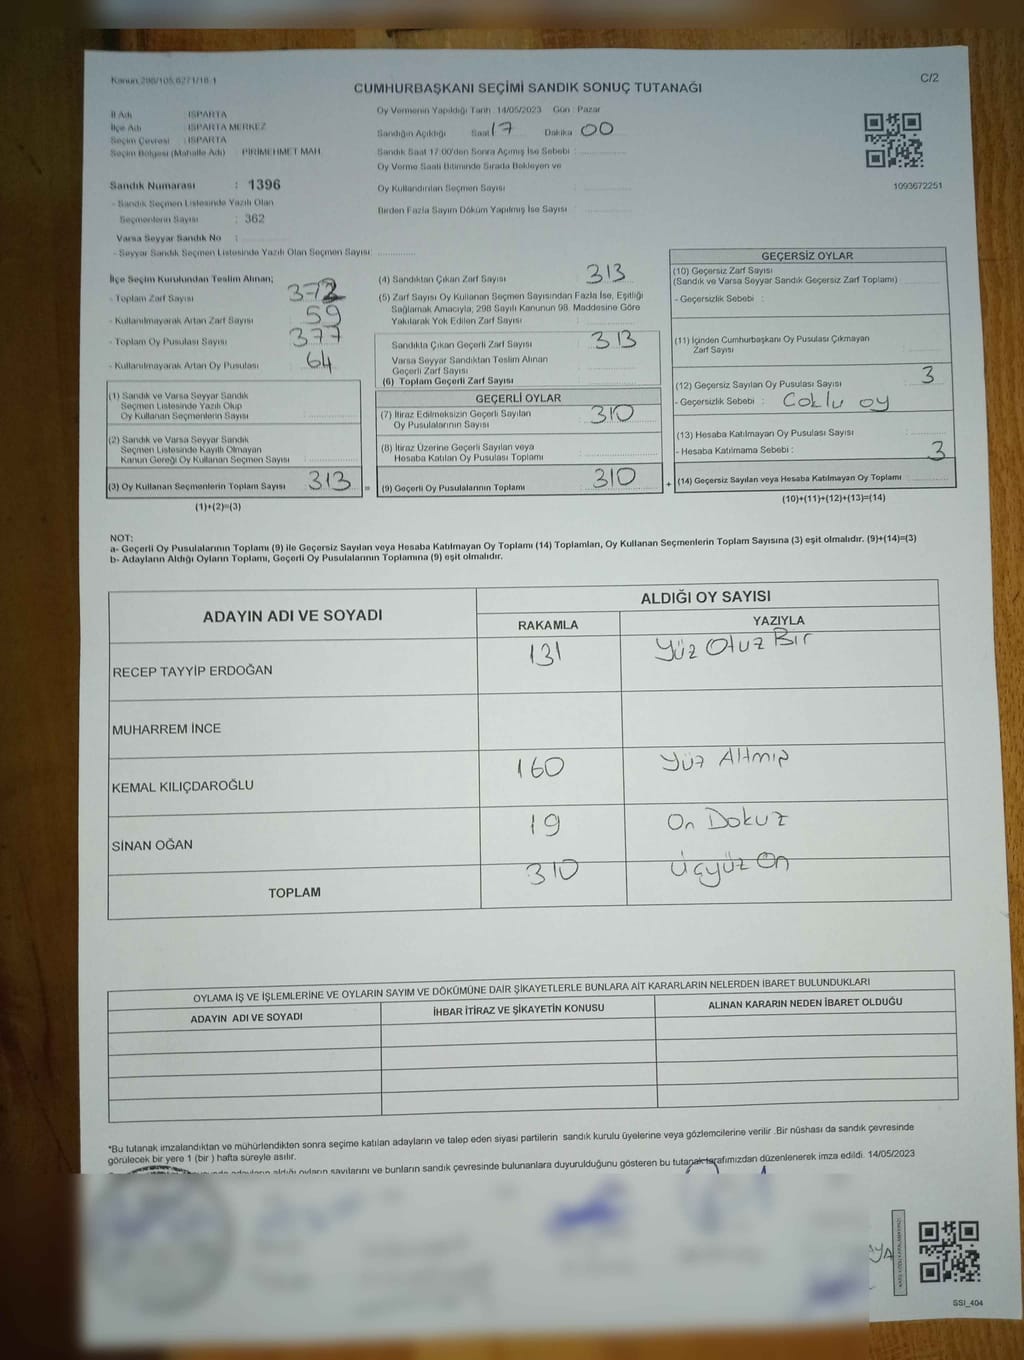 Kanun 298/105,6271/18-1
C/2
CUMHURBAŞKANI SEÇİMİ SANDIK SONUÇ TUTANAĞI
İl Adı ISPARTA
İlçe Adı ISPARTA MERKEZ
Seçim Çevresi : ISPARTA
Seçim Bölgesi (Mahalle Adı) PİRİMEHMET MAH.
Sandık Numarası : 1396
- Sandık Seçmen Listesinde Yazılı Olan
Seçmenlerin Sayısı : 362
Varsa Seyyar Sandık No :
- Seyyar Sandık Seçmen Listesinde Yazılı Olan Seçmen Sayısı:
Oy Vermenin Yapıldığı Tarih : 14/05/2023 Gün : Pazar
Sandığın Açıldığı Saat 17 Dakika 00
Sandık Saat 17:00'den Sonra Açılmış İse Sebebi :
Oy Verme Saati Bitiminde Sırada Bekleyen ve
Oy Kullandırılan Seçmen Sayısı :
Birden Fazla Sayım Döküm Yapılmış İse Sayısı :
1093672251
İlçe Seçim Kurulundan Teslim Alınan;
- Toplam Zarf Sayısı 372
- Kullanılmayarak Artan Zarf Sayısı 59
- Toplam Oy Pusulası Sayısı 377
- Kullanılmayarak Artan Oy Pusulası 64
(1) Sandık ve Varsa Seyyar Sandık
Seçmen Listesinde Yazılı Olup
Oy Kullanan Seçmenlerin Sayısı
(2) Sandık ve Varsa Seyyar Sandık
Seçmen Listesinde Kayıtlı Olmayan
Kanun Gereği Oy Kullanan Seçmen Sayısı
(3) Oy Kullanan Seçmenlerin Toplam Sayısı 313 =
(1)+(2)=(3)
(4) Sandıktan Çıkan Zarf Sayısı 313
(5) Zarf Sayısı Oy Kullanan Seçmen Sayısından Fazla İse, Eşitliği
Sağlamak Amacıyla; 298 Sayılı Kanunun 98. Maddesine Göre
Yakılarak Yok Edilen Zarf Sayısı :
Sandıkta Çıkan Geçerli Zarf Sayısı 313
Varsa Seyyar Sandıktan Teslim Alınan
Geçerli Zarf Sayısı
(6) Toplam Geçerli Zarf Sayısı
GEÇERLİ OYLAR
(7) İtiraz Edilmeksizin Geçerli Sayılan 310
Oy Pusulalarının Sayısı
(8) İtiraz Üzerine Geçerli Sayılan veya
Hesaba Katılan Oy Pusulası Toplamı
(9) Geçerli Oy Pusulalarının Toplamı 310 +
GEÇERSİZ OYLAR
(10) Geçersiz Zarf Sayısı
(Sandık ve Varsa Seyyar Sandık Geçersiz Zarf Toplamı)
- Geçersizlik Sebebi :
(11) İçinden Cumhurbaşkanı Oy Pusulası Çıkmayan
Zarf Sayısı
(12) Geçersiz Sayılan Oy Pusulası Sayısı 3
- Geçersizlik Sebebi : Çoklu oy
(13) Hesaba Katılmayan Oy Pusulası Sayısı
- Hesaba Katılmama Sebebi : 3
(14) Geçersiz Sayılan veya Hesaba Katılmayan Oy Toplamı
(10)+(11)+(12)+(13)=(14)
NOT:
a- Geçerli Oy Pusulalarının Toplamı (9) ile Geçersiz Sayılan veya Hesaba Katılmayan Oy Toplamı (14) Toplamları, Oy Kullanan Seçmenlerin Toplam Sayısına (3) eşit olmalıdır. (9)+(14)=(3)
b- Adayların Aldığı Oyların Toplamı, Geçerli Oy Pusulalarının Toplamına (9) eşit olmalıdır.
ADAYIN ADI VE SOYADI
ALDIĞI OY SAYISI
RAKAMLA YAZIYLA
RECEP TAYYİP ERDOĞAN 131 Yüz Otuz Bir
MUHARREM İNCE
KEMAL KILIÇDAROĞLU 160 Yüz Altmış
SİNAN OĞAN 19 On Dokuz
TOPLAM 310 Üçyüz On
OYLAMA İŞ VE İŞLEMLERİNE VE OYLARIN SAYIM VE DÖKÜMÜNE DAİR ŞİKAYETLERLE BUNLARA AİT KARARLARIN NELERDEN İBARET BULUNDUKLARI
ADAYIN ADI VE SOYADI İHBAR İTİRAZ VE ŞİKAYETİN KONUSU ALINAN KARARIN NEDEN İBARET OLDUĞU
*Bu tutanak imzalandıktan ve mühürlendikten sonra seçime katılan adayların ve talep eden siyasi partilerin sandık kurulu üyelerine veya gözlemcilerine verilir .Bir nüshası da sandık çevresinde
görülecek bir yere 1 (bir ) hafta süreyle asılır.
aldığı oyların sayılarını ve bunların sandık çevresinde bulunanlara duyurulduğunu gösteren bu tutanak tarafımızdan düzenlenerek imza edildi. 14/05/2023
SSI_404